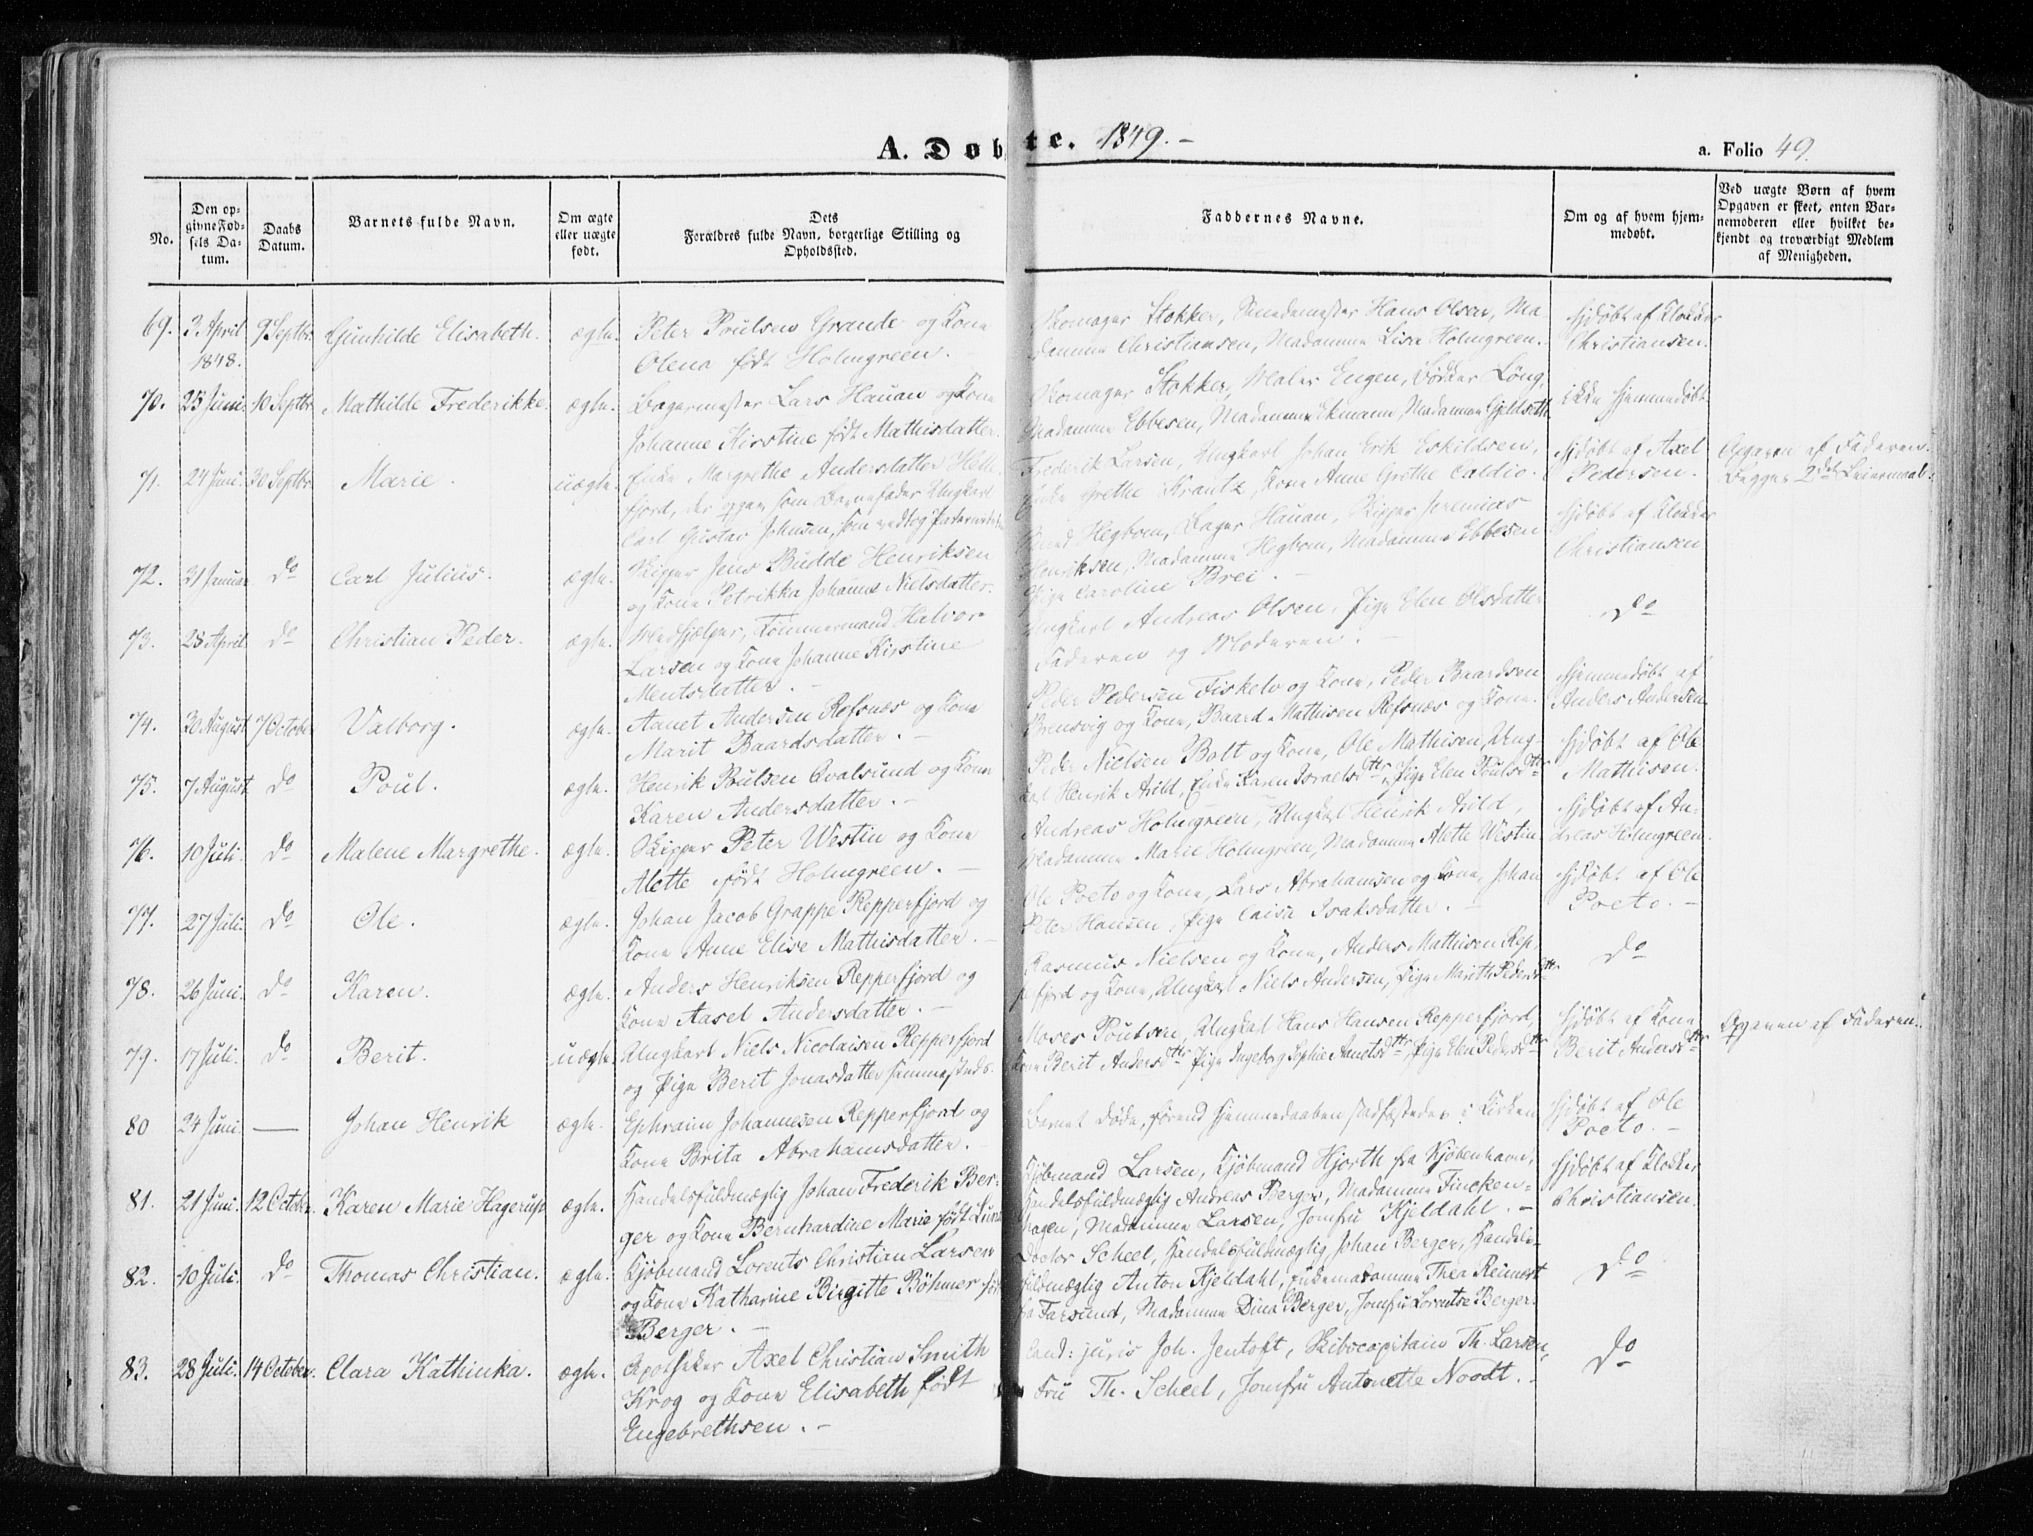 A. Døbte. 1849.-
a. Folio 49.
No.
Den op-
givne Fød-
sels Da-
tum.
Daabs
Datum.
Barnets fulde Navn.
Om ægte
eller uægte
født.
Dets
Forældres fulde Navn, borgerlige Stilling og
Opholdssted.
Faddernes Navne.
Om og af hvem hjem-
medøbt.
Ved uægte Børn af hvem
Opgaven er skeet, enten Bar-
nemoderen eller hvilket be-
kjendt og troværdigt Medlem
af Menigheden.
69. 3. April 1848. 9 Septbr. Gunhilde Elisabeth. ægte.
Peter Poulsen Grande og Kone
Olena født Holmgreen.
Skomager Stokker, Smedemester Hans Olsen, Ma-
damme Christiansen, Madamme Lisa Holmgreen.
Hjdøbt af Klokker
Christiansen.
70. 25 Juni. 10 Septbr. Mathilde Frederikke. ægte.
Bagermester Lars Hauan og Kone
Johanne Kirstine født Mathisdatter.
Skomager Stokker, Maler Engen, Bødker Löng,
Madamme Ebbesen, Madamme Ekmann, Madamme Gjeldseth.
ikke hjemmedøbt.
71. 24 Juni. 30 Septbr. Marie. uægte.
Enke Margrethe Andersdatter
fjord, der opgav som Barnefader Ungkarl
Carl Gustav Johnsen, som vedtog
Frederik Larsen, Ungkarl Johan Erik Eskildsen,
Enke Grethe Krantz, Kone Anne Grethe Caldio.
Hjdøbt af Axel
Pedersen.
Opgaven af Faderen.
Begges 2det Leiermaal.
72. 31 Januar. do Carl Julius. ægte.
Skipper Jens Budde Henriksen
og Kone Petrikka Johanne Nielsdatter.
Hegbom, Bager Hauan, Skipper Jeremias
Henriksen, Madamme Hegbom, Madamme Ebbesen
Pige Caroline Brei. -
Hjdøbt af Klokker
Christiansen
73. 28 April. do Christian Peder. ægte.
Medhjelper, Tømmermand Halvor
Larsen og Kone Johanne Kirstine
Mentsdatter. -
Ungkarl Andreas Olsen, Pige Elen Olsdatter
Faderen og Moderen. -
do
74. 30 August 7 October Valborg. ægte.
Aanet Andersen Refsnæs og Kone
Marit Baardsdatter. -
Peder Pedersen Fiskelv og Kone, Peder Baardsen
Brensvig og Kone, Baard Mathisen Refsnæs og Kone.
Hjemmedøbt af
Anders Andersen
75. 7 August do Poul. ægte.
Henrik Poulsen Qvalsund og Kone
Karen Andersdatter. -
Peder Nielsen Bott og Kone, Ole Mathisen, Ung-
karl Henrik Arild, Enke Karen Israelsdttr, Pige Elen Poulsdttr
Hjdøbt af Ole
Mathisen.
76. 10 Juli. do Malene Margrethe. ægte.
Skipper Peter Westin og Kone
Alette født Holmgreen. -
Andreas Holmgreen, Ungkarl Henrik Arild,
Madamme Marie Holmgreen, Madamme Alette Westin
Hjdøbt af An-
dreas Holmgreen.
77. 27 Juli. do Ole. ægte.
Johan Jacob Grappe Repperfjord og
Kone Anne Elise Mathisdatter. -
Ole Poeto og Kone, Lars Abrahamsen og Kone, Johan
Peter Hansen, Pige Caisa Isaksdatter. -
Hjdøbt af Ole
Poeto. -
78. 26 Juni. do Karen. ægte.
Anders Henriksen Repperfjord og
Kone Aasel Andersdatter. -
Rasmus Nielsen og Kone, Anders Mathisen Rep-
perfjord og Kone, Ungkarl Niels Andersen, Pige Marith Pedersdttr
do
79. 17 Juli. do Berit. uægte
Ungkarl Niels Nicolaisen Repperfjord
og Pige Berit Jonasdatter sammesteds.
Moses Poulsen, Ungkarl Hans Hansen Repperfjord,
Kone Berit Andersdttr Pige Ingeborg Sophie Anetsdttr, Pige Elen Pedersdttr
Hjdøbt af Kone
Berit Andersdttr
Opgaven af Faderen.
80 24 Juni. — Johan Henrik ægte.
Ephraim Johannesen Repperfjord og
Kone Brita Abrahamsdatter. -
Barnet døde, førend Hjemmedaaben stadfæstedes i Kirken
Hjdøbt af Ole
Poeto. -
81. 21 Juni. 12 October. Karen Marie Hagerup ægte.
Handelsfuldmægtig Johan Frederik Ber-
ger og Kone Bernhardine Marie født Lund
Kjøbmand Larsen, Kjøbmand Hjorth fra Kjøbenhavn,
Handelsfuldmægtig Andreas Berger, Madamme Fincken-
hagen, Madamme Larsen, Jomfru Kjeldahl. -
Hjdøbt af Klokker
Christiansen.
82. 10 Juli. do Thomas Christian. ægte.
Kjøbmand Lorents Christian Larsen
og Kone Katharine Birgitte Böhmer født
Berger. -
Doctor Scheel, Handelsfuldmægtig Johan Berger, Handels-
fuldmægtig Anton Kjeldahl, Enkemadamme Thea Reinert
fra Farsund, Madamme Dina Berger, Jomfru Lorentse Berger.
do
83. 28 Juli. 14 October. Clara Kathinka. ægte.
Apotheker Axel Christian Smith
Krog og Kone Elisabeth født
Engebrethsen. -
Cand: juris Joh. Jentoft, Skibscapitain Th. Larsen,
Fru Th. Scheel, Jomfru Antonette Noodt. -
do